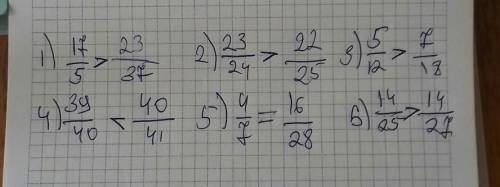 1) 17/5 > 23/37 2) 23/24 > 22/25 3) 5/12 > 7/18
4) 39/40 < 40/41 5) 4/7 = 16/28 6) 14/25 > 14/27